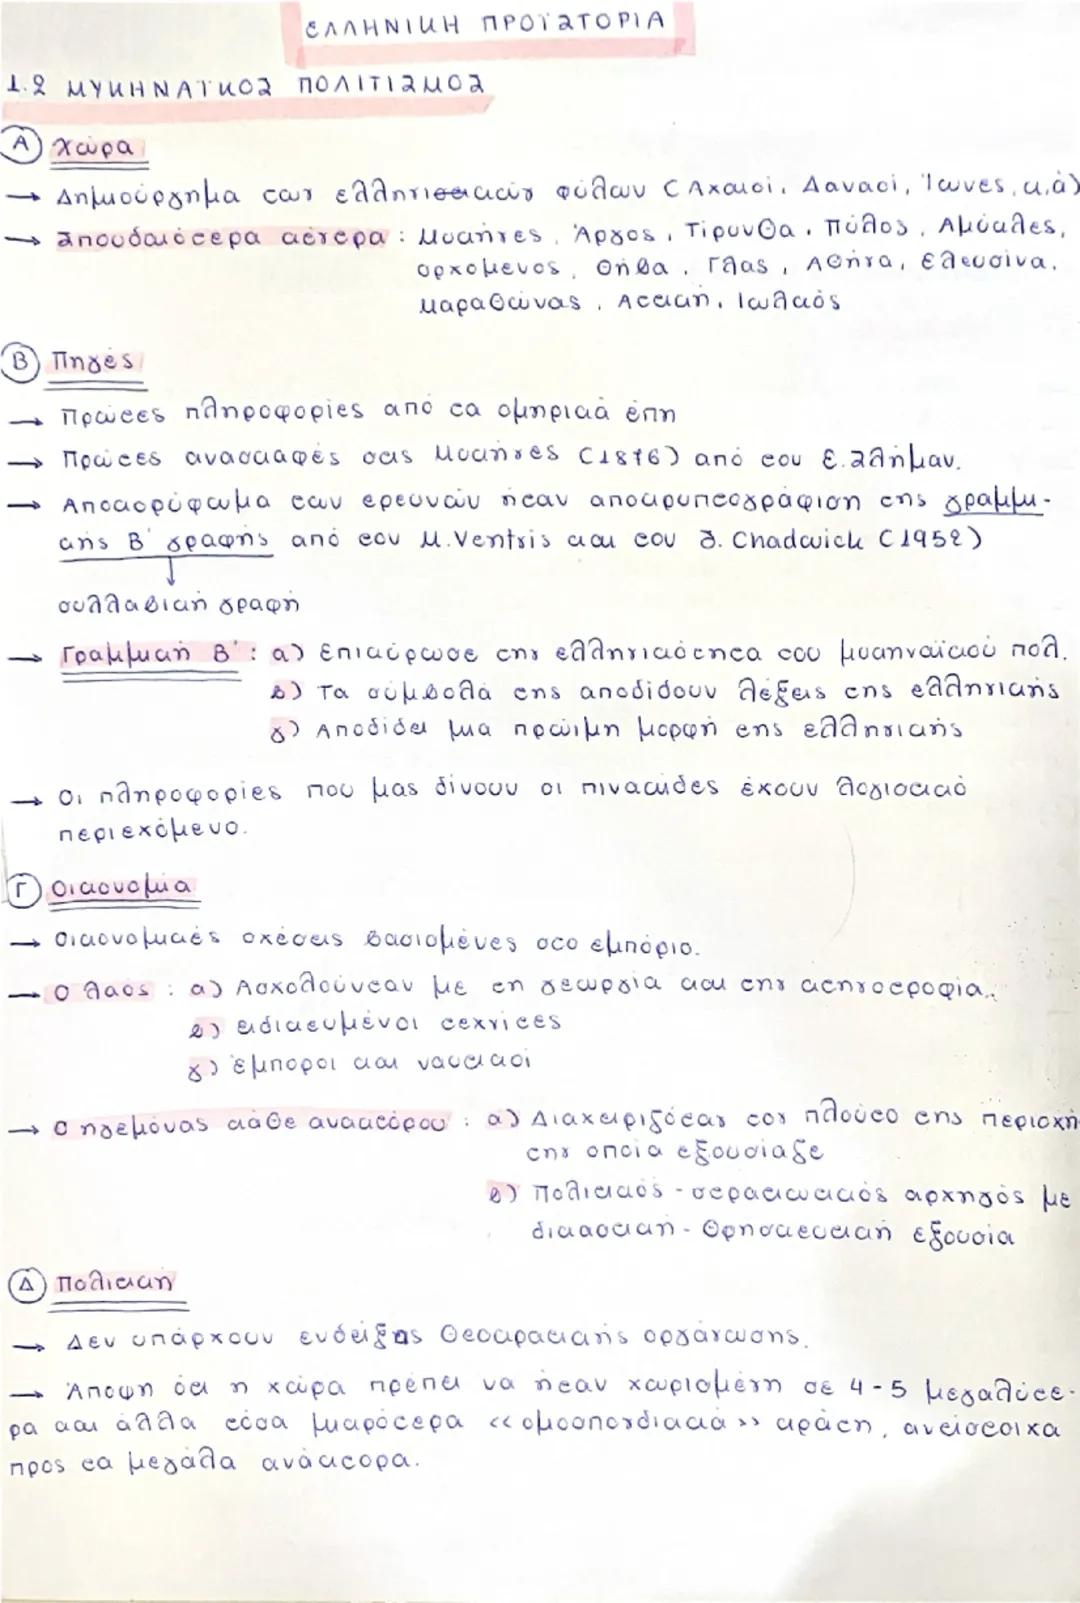 ΕΛΛΗΝΙΚΗ ΠΡΟΪΣΤΟΡΙΑ
1.2 ΜΥΚΗΝΑΪΚΟΣ ΠΟΛΙΤΙΣΜΟΣ
Α Χώρα
→ Δημιούργημα των ελληνικών φύλων (Αχαιοί, Δαναοί, Ίωνες, κ.ά)
→ Σπουδαιότερα κέντρα : Μυκήνες, Άργος, Τίρυνθα, Πύλος, Αμύκλες,
Ορχομενος, Θήβα, Γλας, Αθήνα, Ελευσίνα,
Μαραθώνας, Αττική, Ιωλκός
Β Πηγές
→ Πρώτες πληροφορίες από τα ομηρικά έπη
→ Πρώτες ανασκαφές στις Μυκήνες (1876) από τον Ε. Σλήμαν.
→ Αποκορύφωμα των ερευνών ήταν αποκρυπτογράφιση της γραμμι-
κής Β΄ γραφής από τον M. Ventris και τον J. Chadwick (1952)
↓
συλλαβική γραφή
→ Γραμμική Β΄: α) Επικύρωσε την ελληνικότητα του μυκηναϊκού πολ.
β) Τα σύμβολά της αποδίδουν λέξεις της ελληνικής
γ) Αποδίδει μια πρώιμη μορφή της ελληνικής
→ Οι πληροφορίες που μας δίνουν οι πινακίδες έχουν λογιστικό
περιεχόμενο.
Γ Οικονομία
→ Οικονομικές σχέσεις βασισμένες στο εμπόριο.
→ Ο λαός : α) Ασχολούνταν με τη γεωργία και την κτηνοτροφία.
β) ειδικευμένοι τεχνίτες
γ) Έμποροι και ναυτικοί
→ Ο ηγεμόνας κάθε ανακτόρου : α) Διαχειριζόταν τον πλούτο της περιοχή
την οποία εξουσίαζε
β) Πολιτικός - στρατιωτικός αρχηγός με
δικαστική - θρησκευτική εξουσία
Δ Πολιτική
→ Δεν υπάρχουν ενδείξεις θεοκρατικής οργάνωσης.
→ Άποψη ότι η χώρα πρέπει να ήταν χωρισμένη σε 4-5 μεγαλύτε-
ρα και άλλα τόσα μικρότερα «ομοσπονδιακά» κράτη, αντίστοιχα
προς τα μεγάλα ανάκτορα.